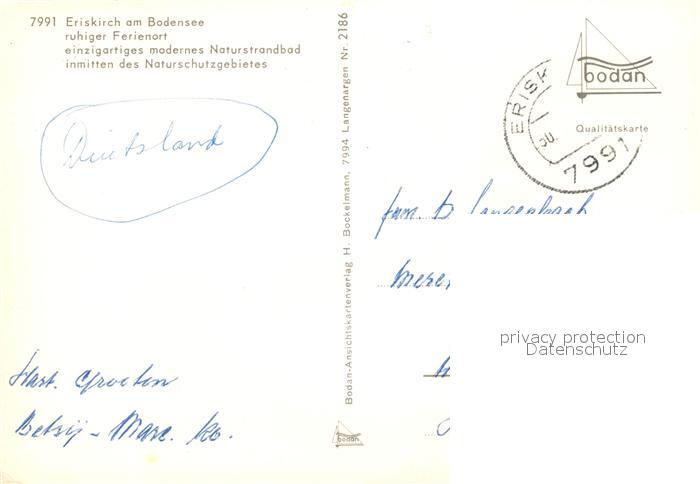 7991 Eriskirch am Bodensee
ruhiger Ferienort
einzigartiges modernes Naturstrandbad
inmitten des Naturschutzgebietes
Duitsland
Hart. Groeten
Betsij - Marc. ko.
Bodan-Ansichtskartenverlag H. Bockelmann, 7994 Langenargen Nr. 2186
bodan
bodan
Qualitätskarte
ERISK
7991
fam. B
privacy protection
Datenschutz